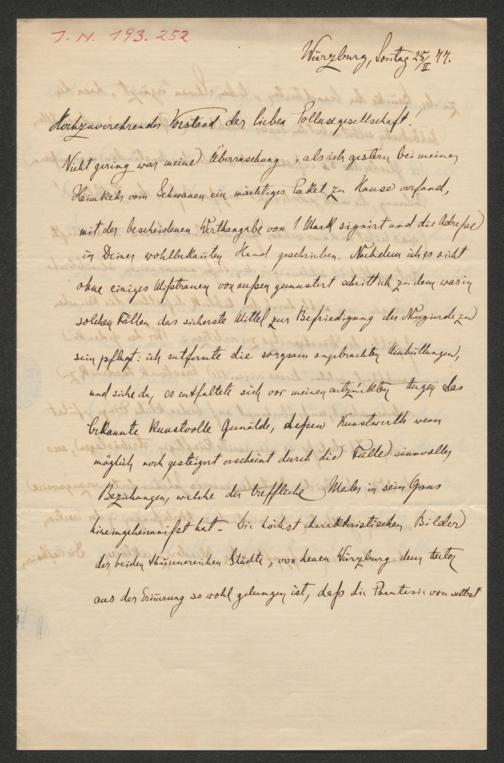 J. N. 193.252
Würzburg, Sontag 25/II 77.
Hochzuverehrender Vorstand der lieben Gesellschaft!
Nicht gering war meine Überraschung, als ich gestern bei meiner
Heimkehr vom Schwanen ein mächtiges Paket zu Hause vorfand,
mit der bescheidenen Werthangabe von 1 Mark signirt und die Adresse
in Deiner wohlbekannten Hand geschrieben. Nachdem ich es nicht
ohne einiges Mißtrauen von außen gemustert schritt ich zu dem was in
solchen Fällen das sicherste Mittel zur Befriedigung der Neugierde zu
sein pflegt: ich entfernte die sorgsam angebrachten Umhüllungen,
und siehe da, es entfaltete sich vor meinen entzückten Augen das
bekannte kunstvolle Gemälde, dessen Kunstwerth wenn
möglich noch gesteigert erscheint durch die Fülle sinnvoller
Beziehungen, welche der treffliche Maler in sein Opus
hineingeheimnißt hat. Die höchst Bilder
der beiden Städte, von denen Würzburg dem
aus der Erinnerung so wohl gelungen ist, daß die Phantasie von selbst